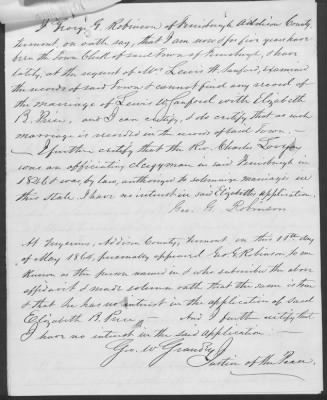 I George G. Robinson of Ferrisburgh Addison County
Vermont, on oath say, that I am now & for five years have
been the Town Clerk of said Town of Ferrisburgh, & have
lately, at the request of Mr. Lewis W. Sanford, examined
the records of said Town & cannot find any record of
the marriage of Lewis W. Sanford with Elizabeth
B. Peirce, and I can certify, & do certify that no such
marriage is recorded in the records of said Town. —
I further certify that the Rev. Charles
was an officiating Clergyman in said Ferrisburgh in
1846 & was, by law, authorized to solemnize marriages in
this State. I have no interest in said Elizabeths application.
Geo. G. Robinson
At Vergennes, Addison County, Vermont on this 18th day
of May 1864, personally appeared Geo G. Robinson, to me
known as the person named in & who subscribed the above
affidavit & made solemn oath that the same is true
& that he has no interest in the application of said
Elizabeth B. Peirce — And I further certify that
I have no interest in the said application —
Geo. W. Grandey
Justice of the Peace.